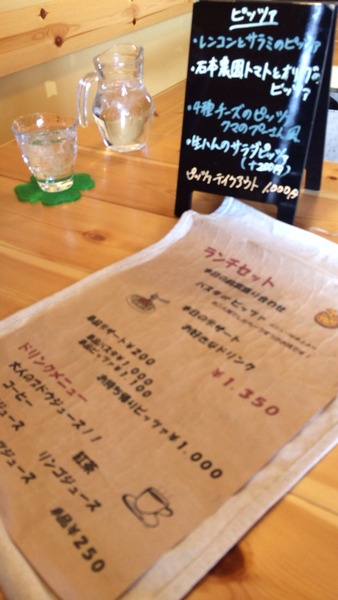 ピッツァ
・レンコンとサラミのピッツァ
・石本農園トマトとオリーブの
ピッツァ
・4種チーズのピッツァ
クマのプーさん風
・生ハムのサラダピッツァ
(+200円)
ピッツァテイクアウト 1,000円
ランチセット
本日の前菜盛り合わせ
パスタ or ピッツァ
本日のデザート
お好きなドリンク
¥1.350
単品デザート¥200
単品パスタ¥1,000
単品ピッツァ¥1,100
お持ち帰りピッツァ¥1.000
ドリンクメニュー
大人のブドウジュース!!
コーヒー
紅茶
ジュース
リンゴジュース
ジュース
単品¥250